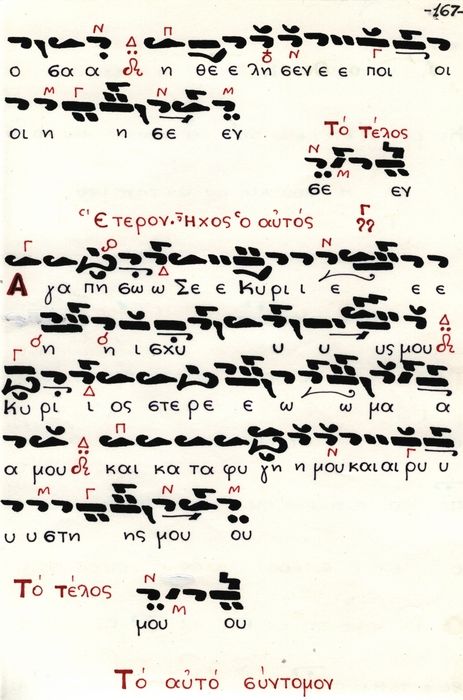 -167-
ο σα α η θε ε λη σεν ε ε ποι οι
οι η η σε εν
Τό τέλος
σε εν
Έτερον. Ἦχος ὁ αὐτός
Α γα πη σω ω Σε ε Κυ ρι ι ε ε ε
η ι σχυ υ υ υς μου
Κυ ρι ι ος στε ρε ε ω ω μα α
α μου και κα τα φυ γη η μου και αι ρυ υ
υ υ στη ης μου ου
Τό τέλος
μου ου
Τό αὐτό σύντομον